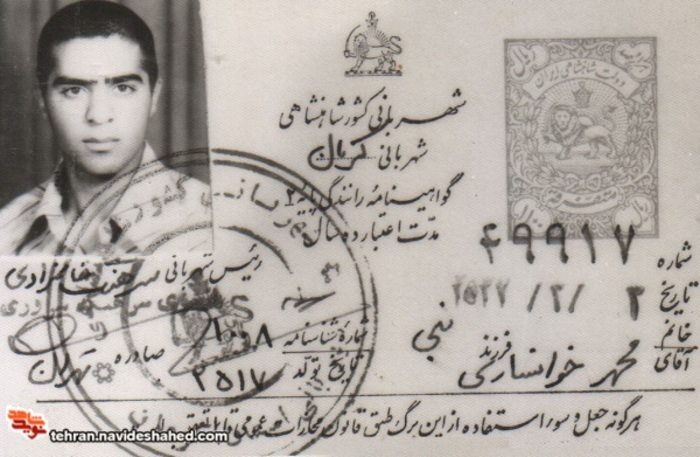 شهربانی کشور شاهنشاهی
شهربانی
گواهینامه رانندگی پایه ۲
مدت اعتبار ده سال
دولت شاهنشاهی ایران
شماره ۴۹۹۱۷
تاریخ ۳ /۲/ ۲۵۳۷
خانم
آقای خوانساری فرزند نبی
رئیس شهربانی سرهنگ
شمارهٔ شناسنامه ۱۰۰۸ صادره تهران
تاریخ تولد ۲۵۱۷
هرگونه جعل و سوء استفاده از این برگ طبق قانون مجازات عمومی قابل تعقیب
نوید شاهد
tehran.navideshahed.com